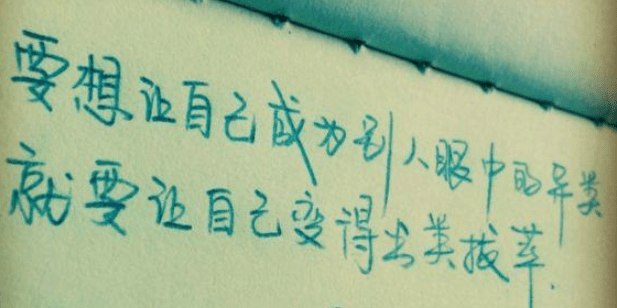 要想让自己成为别人眼中的异类
就要让自己变得出类拔萃.